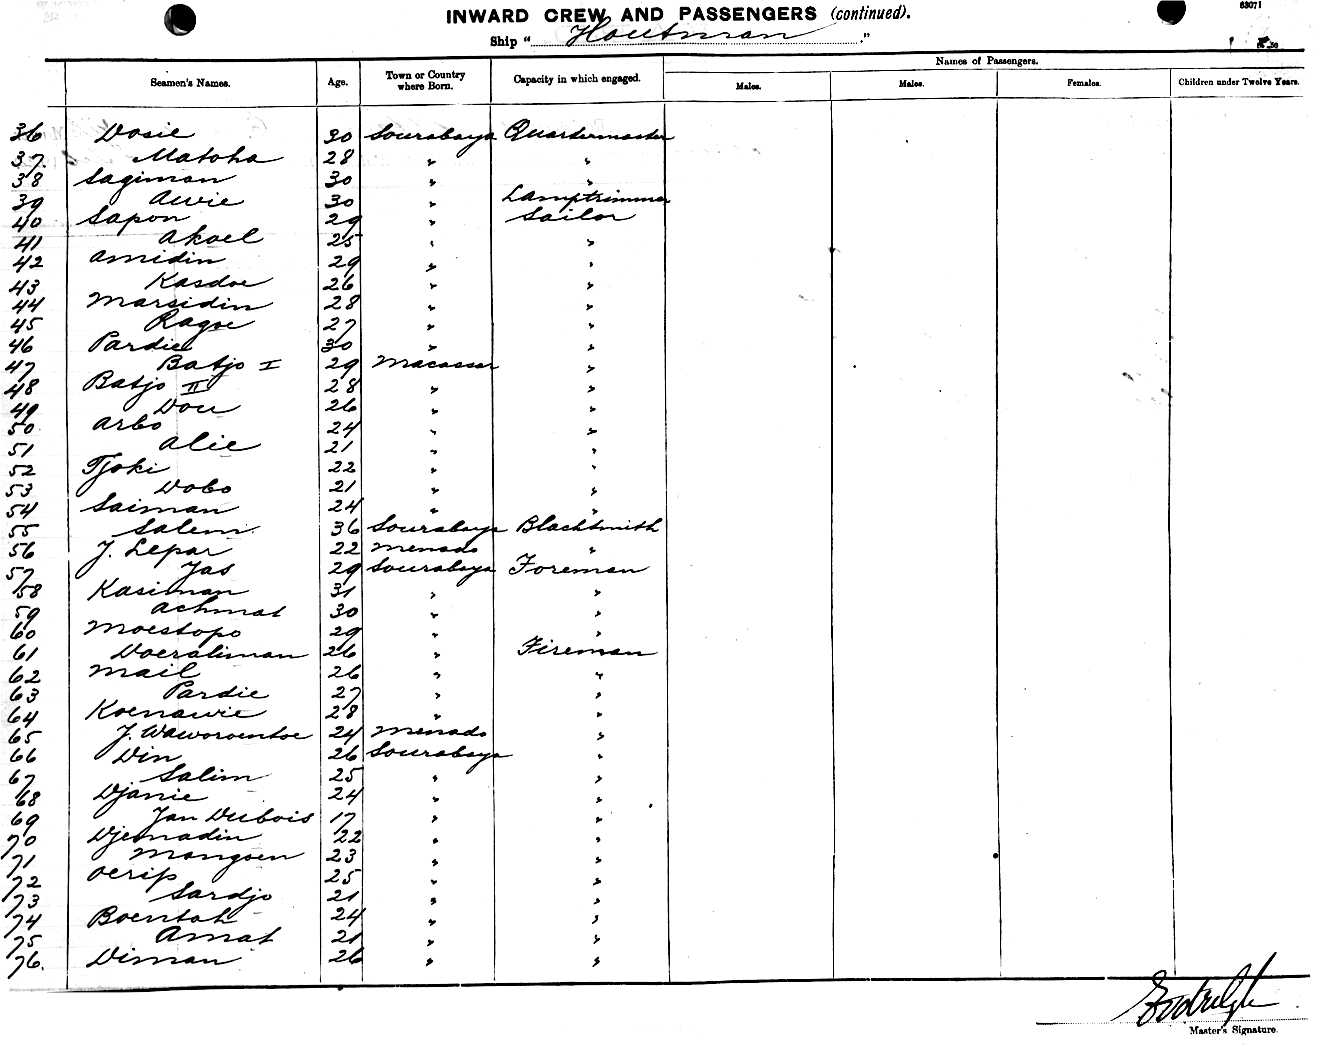 63071
INWARD CREW AND PASSENGERS (continued).
Ship "Houtman."
Names of Passengers.
Seamen's Names. Age. Town or Country where Born. Capacity in which engaged. Males. Males. Females. Children under Twelve Years.
36 Dosie 30 Sourabaya Quartermaster
37. Matoha 28 " "
38 Sagiman 30 " "
39 Awie 30 " Lamptrimmer
40 Sapon 29 " Sailor
41 Akoel 25 " "
42 Amidin 29 " "
43 Kasdoe 26 " "
44 Marsidin 28 " "
45 Ragoe 27 " "
46 Pardie 30 " "
47 Batjo I 29 Macassar "
48 Batjo II 28 " "
49 Dou 26 " "
50 Arbo 24 " "
51 Alie 21 " "
52 Tjoki 22 " "
53 Dobo 21 " "
54 Saiman 24 " "
55 Salem 36 Sourabaya Blacksmith
56 J. Lepar 22 Menado "
57 Jas 29 Sourabaya Foreman
58 Kasiman 31 " "
59 Achmat 30 " "
60 Moestopo 29 " "
61 Doeraliman 26 " Fireman
62 Mail 26 " "
63 Pardie 27 " "
64 Koenawie 28 " "
65 J. Waworoentoe 24 Menado "
66 Din 26 Sourabaya "
67 Salim 25 " "
68 Djanie 24 " "
69 Jan Dubois 17 " "
70 Djemadin 22 " "
71 Mangoen 23 " "
72 Oerip 25 " "
73 Sardjo 21 " "
74 Boentah 24 " "
75 Amat 21 " "
76. Diman 26 " "
Master's Signature.